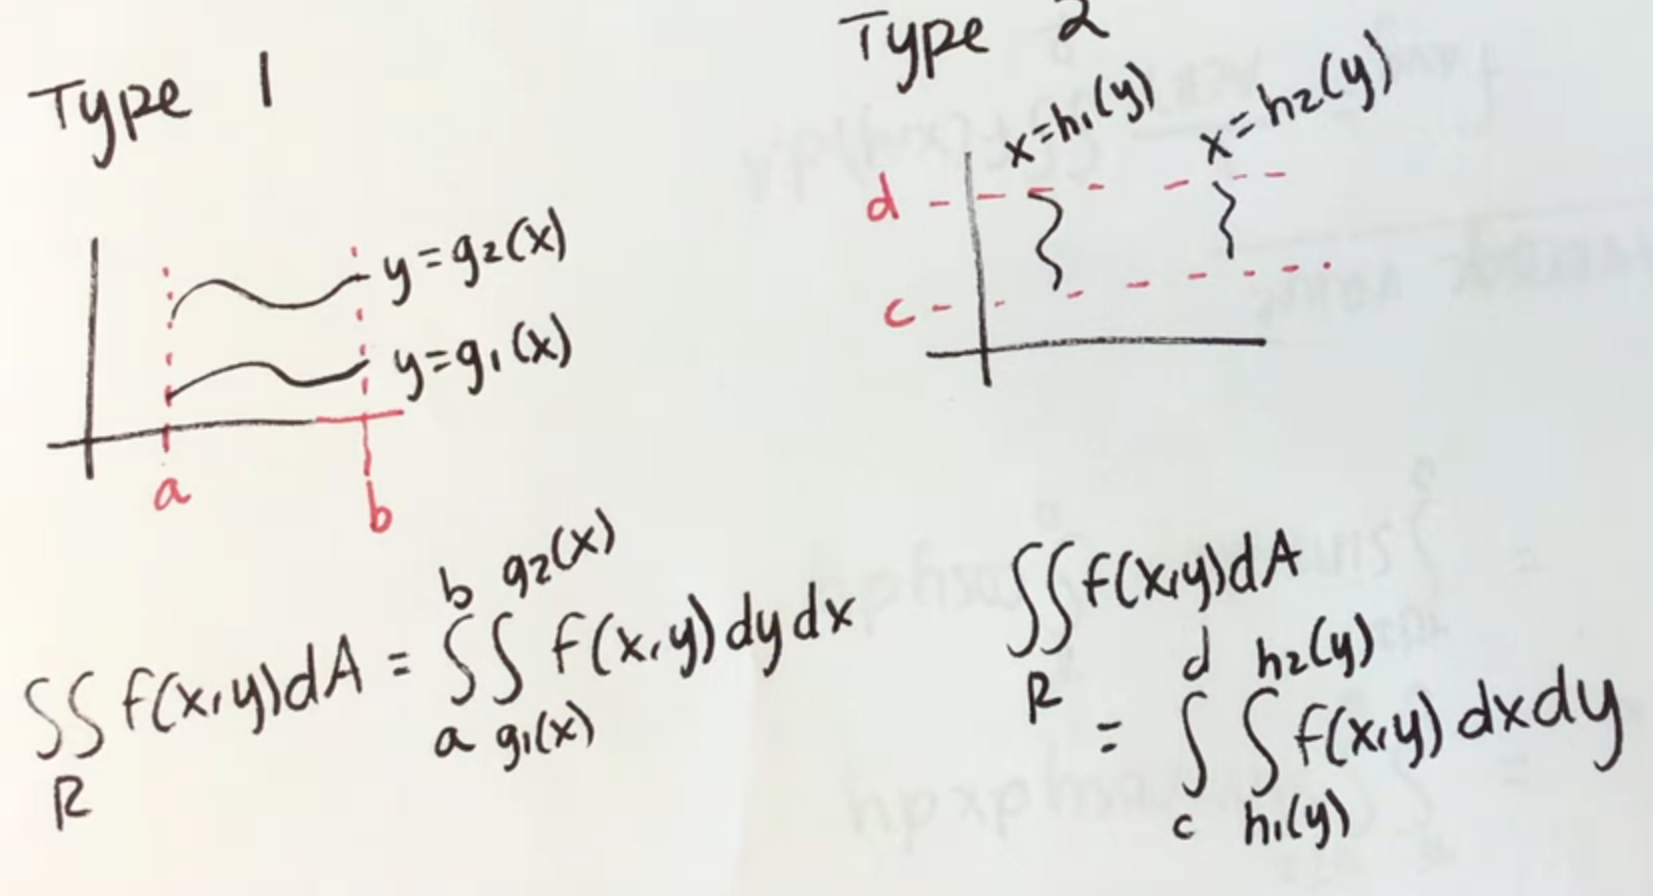 Type 1
y=g₂(x)
y=g₁(x)
a b
∬_R f(x,y)dA = ∫_a^b ∫_{g₁(x)}^{g₂(x)} f(x,y) dy dx
Type 2
x=h₁(y) x=h₂(y)
d
c
∬_R f(x,y)dA
= ∫_c^d ∫_{h₁(y)}^{h₂(y)} f(x,y) dxdy